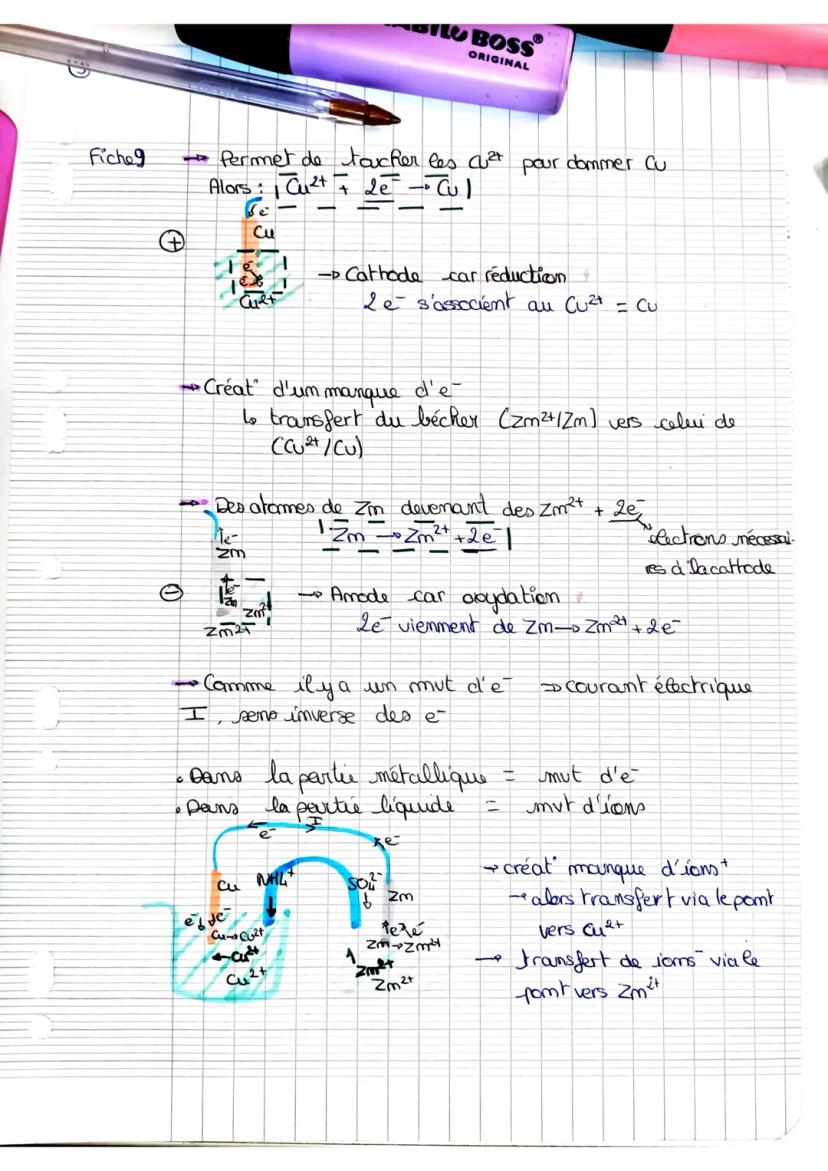 STABILO BOSS®
ORIGINAL
Fiche 9 → Permet de toucher les Cu²⁺ pour donner Cu
Alors : | Cu²⁺ + 2e⁻ → Cu |
e⁻
Cu
⊕
e⁻
Cu²⁺
→ Cathode car réduction
2 e⁻ s'associent au Cu²⁺ = Cu
→ Créat° d'un manque d'e⁻
↳ transfert du bécher (Zn²⁺/Zn) vers celui de
(Cu²⁺/Cu)
→ Des atomes de Zn devenant des Zn²⁺ + 2e⁻
| Zn → Zn²⁺ + 2e⁻ |
électrons nécessai-
res à la cathode
↑e⁻
Zn
⊖
e⁻
Zn
Zn²⁺
Zn²⁺
→ Anode car oxydation
2e⁻ viennent de Zn → Zn²⁺ + 2e⁻
→ Comme il y a un mvt d'e⁻ ⇒ courant électrique
I, sens inverse des e⁻
• Dans la partie métallique = mvt d'e⁻
• Dans la partie liquide = mvt d'ions
I
e⁻
e⁻
Cu
NH4⁺
SO4²⁻
Zn
e⁻ ↓e⁻
Cu→Cu²⁺
←Cu²⁺
Cu²⁺
Zn→Zn²⁺
Zn²⁺
Zn²⁺
→ créat° manque d'ions⁺
→ alors transfert via le pont
vers Cu²⁺
→ transfert de ions⁻ via le
pont vers Zn²⁺